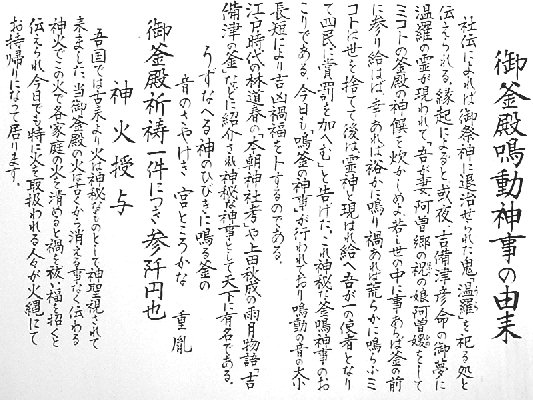 御釜殿鳴動神事の由来
社伝によれば御祭神に退治せられた鬼「温羅」を祀る処と
伝えられる、縁起によると或夜、吉備津彦命の御夢に
温羅の霊が現われて、「吾が妻、阿曽郷の祝の娘阿曽媛をして
ミコトの釜殿の神饌を炊かしめよ若し世の中に事あらば釜の前
に参り給はば、幸あれば裕かに鳴り禍あれば荒らかに鳴らふミ
コトは世を捨てて後は霊神と現はれ給へ吾が一の使者となり
て四民に賞罰を加へむ」と告げた、これ神秘な釜鳴神事のお
こりである。今日も「鳴釜の神事」が行われており鳴動の音の大小
長短により吉凶禍福を卜するのである。
江戸時代の林道春の「本朝神社考」や上田秋成の雨月物語「吉
備津の釜」などに紹介され神秘な神事として天下に有名である。
うすなへる神のひびきに鳴る釜の
音のさやけき 宮ところかな 重胤
御釜殿祈祷一件につき参阡円也
神火授与
吾国では古来より火は神秘なものとして神聖視されて
来ました、当御釜殿の火は古くから消える事なく伝わる
神火でこの火で各家庭の火を清めると禍を祓い福を招くと
伝えられ今日でも特に火を取扱われる人々が火縄にて
お持帰りになって居ります。